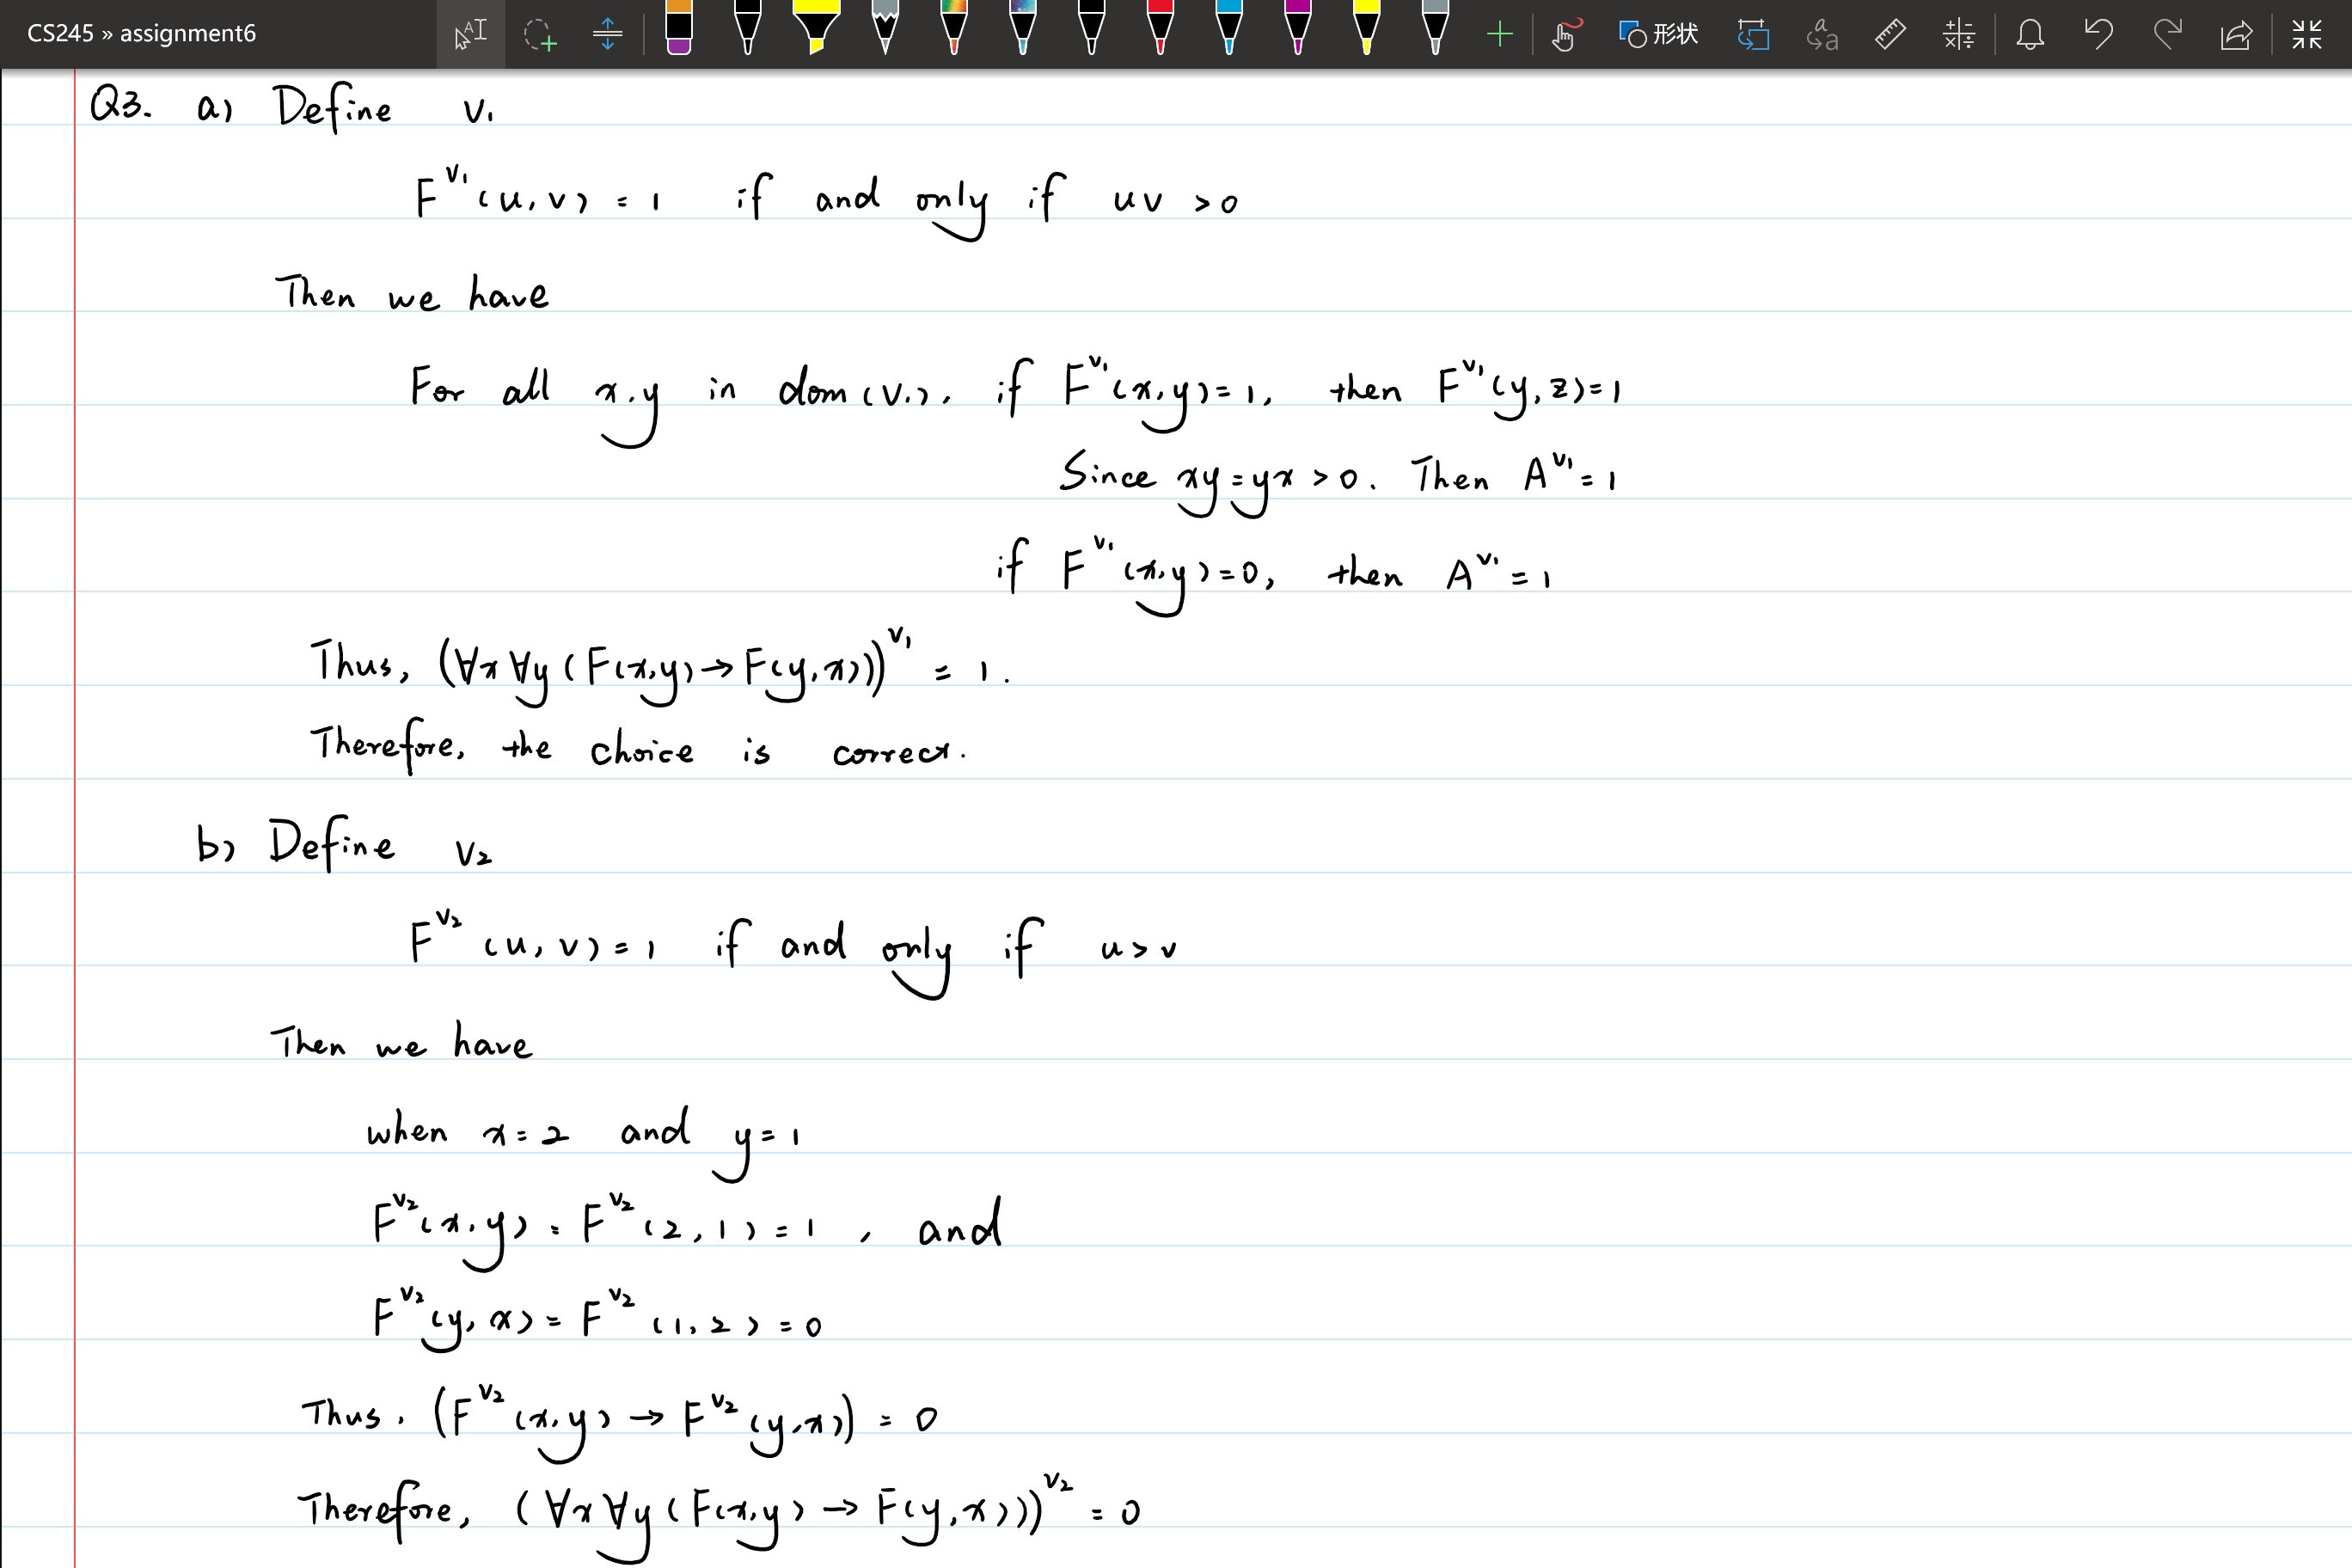 CS245 » assignment6
形状
Q3. a) Define v₁
F^v₁(u, v) = 1 if and only if uv > 0
Then we have
For all x, y in dom(v₁), if F^v₁(x, y) = 1, then F^v₁(y, z) = 1
Since xy = yx > 0. Then A^v₁ = 1
if F^v₁(x, y) = 0, then A^v₁ = 1
Thus, (∀x ∀y (F(x, y) → F(y, x)))^v₁ = 1.
Therefore, the choice is correct.
b) Define v₂
F^v₂(u, v) = 1 if and only if u > v
Then we have
when x = 2 and y = 1
F^v₂(x, y) = F^v₂(2, 1) = 1, and
F^v₂(y, x) = F^v₂(1, 2) = 0
Thus, (F^v₂(x, y) → F^v₂(y, x)) = 0
Therefore, (∀x ∀y (F(x, y) → F(y, x)))^v₂ = 0